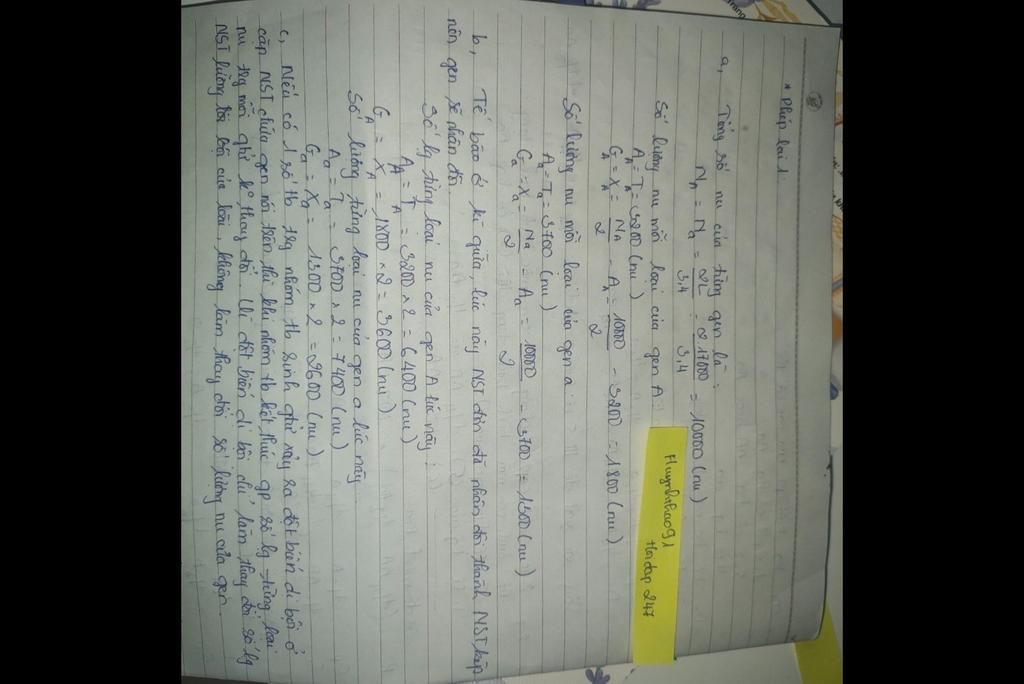 * Phép lai 1:
a, Tổng số nu của từng gen là:
N_A = N_a = 2L/3,4 = 2.17000/3,4 = 10000 (nu)
Số lượng nu mỗi loại của gen A
A_A = T_A = 3200 (nu)
G_A = X_A = N_A/2 - A_A = 10000/2 - 3200 = 1800 (nu)
Số lượng nu mỗi loại của gen a:
A_a = T_a = 3700 (nu)
G_a = X_a = N_a/2 - A_a = 10000/2 - 3700 = 1300 (nu)
b, Tế bào ở kì giữa, lúc này NST đơn đã nhân đôi thành NST kép
nên gen sẽ nhân đôi.
Số lg từng loại nu của gen A lúc này:
A_A = T_A = 3200 × 2 = 6400 (nu)
G_A = X_A = 1800 × 2 = 3600 (nu)
Số lượng từng loại nu của gen a lúc này
A_a = T_a = 3700 × 2 = 7400 (nu)
G_a = X_a = 1300 × 2 = 2600 (nu)
c, Nếu có 1 số tb trg nhóm tb sinh gtử xảy ra đột biến dị bội ở
cặp NST chứa gen nói trên thì khi nhóm tb kết thúc gp số lg từng loại
nu trg mỗi gtử k° thay đổi. Vì đột biến dị bội chỉ làm thay đổi số lg
NST lưỡng bội của loài, không làm thay đổi số lượng nu của gen.
Huynhthao91
Hoidap247